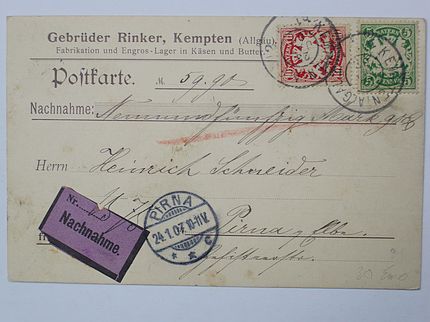 Gebrüder Rinker, Kempten (Allgäu).
Fabrikation und Engros-Lager in Käsen und Butter.
Postkarte. M. 59.90
Nachnahme: Neunundfünfzig Mark 90
Herrn Heinrich Schneider
Nr.
Nachnahme.
PIRNA
24.1.07. 10-11V.
* * c
Pirna a/Elbe.
10
5
KEMPTEN